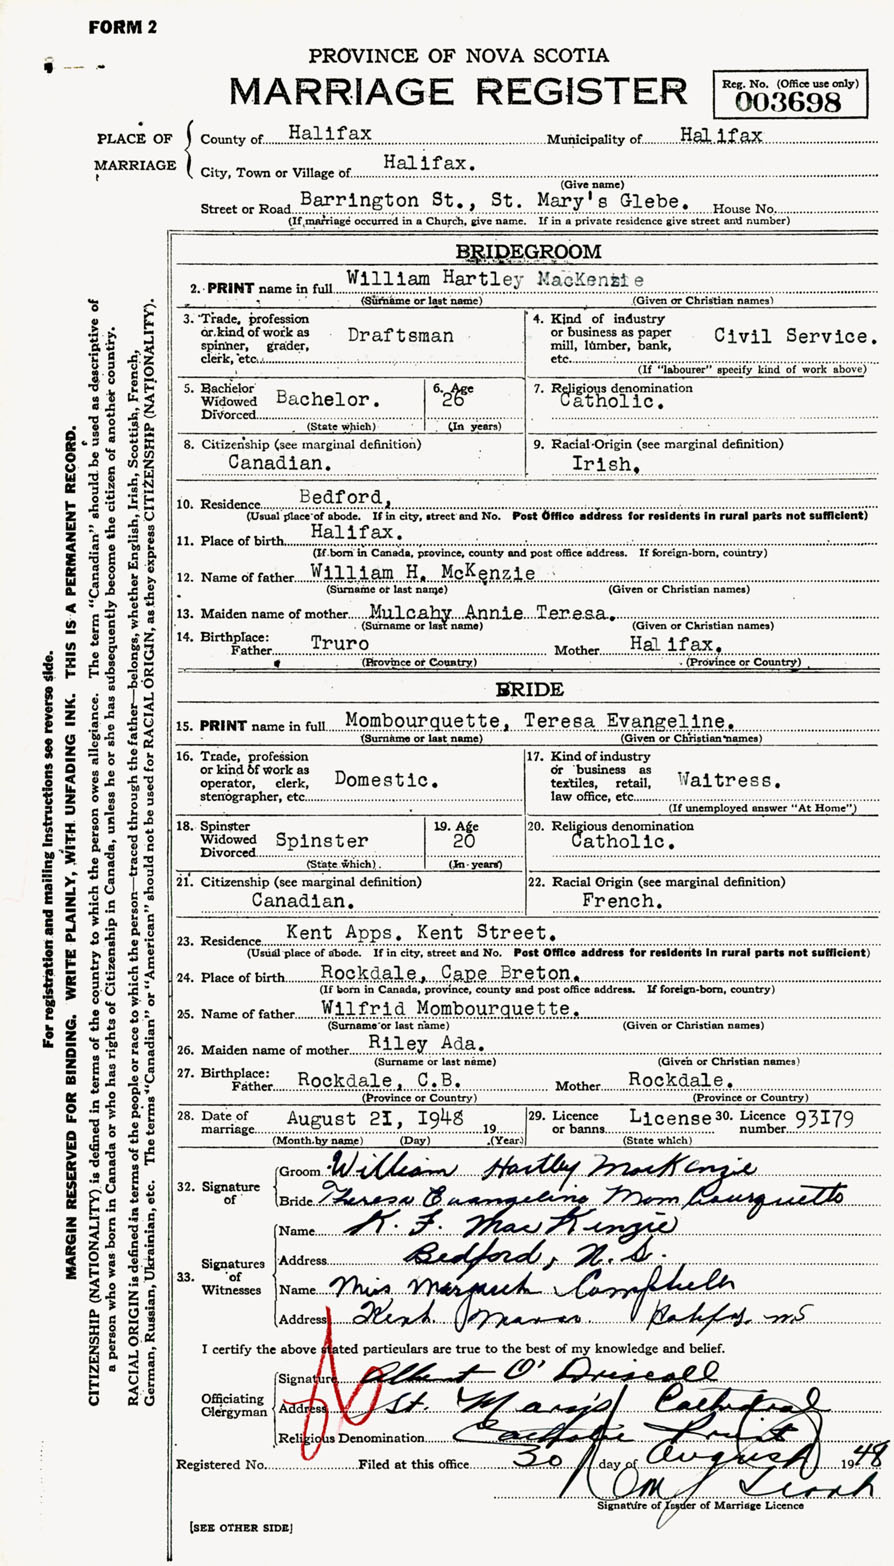 FORM 2
PROVINCE OF NOVA SCOTIA
MARRIAGE REGISTER
Reg. No. (Office use only)
003698
PLACE OF MARRIAGE
County of Halifax Municipality of Halifax
City, Town or Village of Halifax.
(Give name)
Street or Road Barrington St., St. Mary's Glebe. House No.
(If marriage occurred in a Church, give name. If in a private residence give street and number)
BRIDEGROOM
2. PRINT name in full William Hartley MacKenzie
(Surname or last name) (Given or Christian names)
3. Trade, profession or kind of work as spinner, grader, clerk, etc. Draftsman
4. Kind of industry or business as paper mill, lumber, bank, etc. Civil Service.
(If "labourer" specify kind of work above)
5. Bachelor Widowed Divorced Bachelor.
(State which)
6. Age 26
(In years)
7. Religious denomination
Catholic.
8. Citizenship (see marginal definition)
Canadian.
9. Racial Origin (see marginal definition)
Irish,
10. Residence Bedford,
(Usual place of abode. If in city, street and No. Post Office address for residents in rural parts not sufficient)
11. Place of birth Halifax.
(If born in Canada, province, county and post office address. If foreign-born, country)
12. Name of father William H. McKenzie
(Surname or last name) (Given or Christian names)
13. Maiden name of mother Mulcahy Annie Teresa.
(Surname or last name) (Given or Christian names)
14. Birthplace: Father Truro Mother Halifax.
(Province or Country) (Province or Country)
BRIDE
15. PRINT name in full Mombourquette, Teresa Evangeline.
(Surname or last name) (Given or Christian names)
16. Trade, profession or kind of work as operator, clerk, stenographer, etc. Domestic.
17. Kind of industry or business as textiles, retail, law office, etc. Waitress.
(If unemployed answer "At Home")
18. Spinster Widowed Divorced Spinster
(State which)
19. Age 20
(In years)
20. Religious denomination
Catholic.
21. Citizenship (see marginal definition)
Canadian.
22. Racial Origin (see marginal definition)
French.
23. Residence Kent Apps. Kent Street.
(Usual place of abode. If in city, street and No. Post Office address for residents in rural parts not sufficient)
24. Place of birth Rockdale, Cape Breton.
(If born in Canada, province, county and post office address. If foreign-born, country)
25. Name of father Wilfrid Mombourquette.
(Surname or last name) (Given or Christian names)
26. Maiden name of mother Riley Ada.
(Surname or last name) (Given or Christian names)
27. Birthplace: Father Rockdale, C.B. Mother Rockdale.
(Province or Country) (Province or Country)
28. Date of marriage August 21, 1948 19
(Month by name) (Day) (Year)
29. Licence or banns License
(State which)
30. Licence number 93179
32. Signature of
Groom William Hartley MacKenzie
Bride Theresa Evangeline Mombourquette
33. Signatures of Witnesses
Name K. F. MacKenzie
Address Bedford, N.S.
Name Miss Margaret Campbell
Address Kent Halifax, NS
I certify the above stated particulars are true to the best of my knowledge and belief.
Officiating Clergyman
Signature Albert O'Driscoll
Address St. Mary's Cathedral
Religious Denomination Catholic Priest
Registered No. Filed at this office 30 day of August 1948
Signature of Issuer of Marriage Licence
[SEE OTHER SIDE]
For registration and mailing instructions see reverse side.
MARGIN RESERVED FOR BINDING. WRITE PLAINLY, WITH UNFADING INK. THIS IS A PERMANENT RECORD.
CITIZENSHIP (NATIONALITY) is defined in terms of the country to which the person owes allegiance. The term "Canadian" should be used as descriptive of
a person who was born in Canada or who has rights of Citizenship in Canada, unless he or she has subsequently become the citizen of another country.
RACIAL ORIGIN is defined in terms of the people or race to which the person—traced through the father—belongs, whether English, Irish, Scottish, French,
German, Russian, Ukrainian, etc. The terms "Canadian" or "American" should not be used for RACIAL ORIGIN, as they express CITIZENSHIP (NATIONALITY).